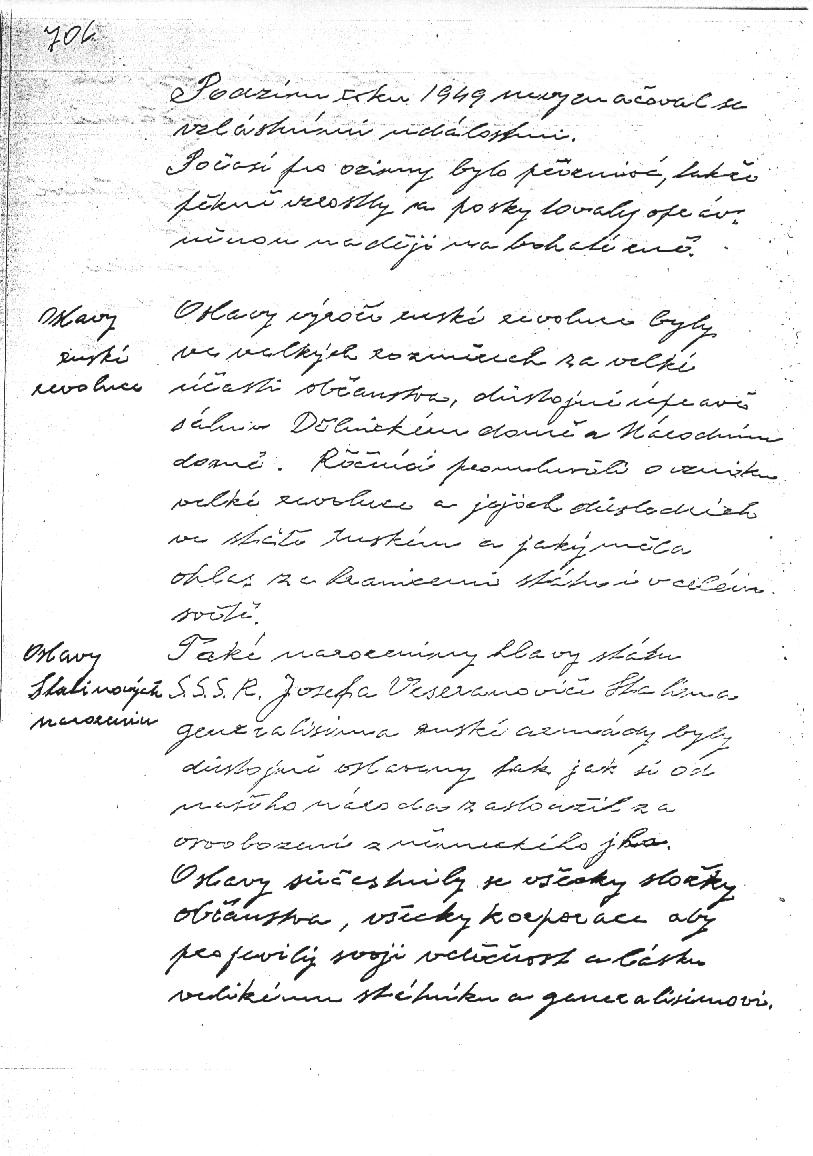 706
Podzim roku 1949 nevyznačoval se
zvláštními událostmi.
Počasí pro ozimy bylo příznivé, takže
pěkně vzrostly a poskytovaly opráv-
něnou naději na bohaté žně.
Oslavy
ruské
revoluce
Oslavy výročí ruské revoluce byly
ve velkých rozměrech za velké
účasti občanstva, důstojné úpravě
sálu v Dělnickém domě a Národním
domě. Řečníci promluvili o vzniku
velké revoluce a jejích důsledcích
ve státě ruském a jaký měla
ohlas za hranicemi státu i v celém
světě.
Oslavy
Stalinových
narozenin
Také narozeniny hlavy státu
S.S.S.R. Josefa Visaranoviče Stalina
generalisima ruské armády byly
důstojně oslaveny tak jak si od
našeho národa zasloužil za
osvobození z německého jha.
Oslavy súčastnily se všecky složky
občanstva, všecky korporace aby
projevily svoji vděčnost a lásku
velikému státníku a generalisimovi.